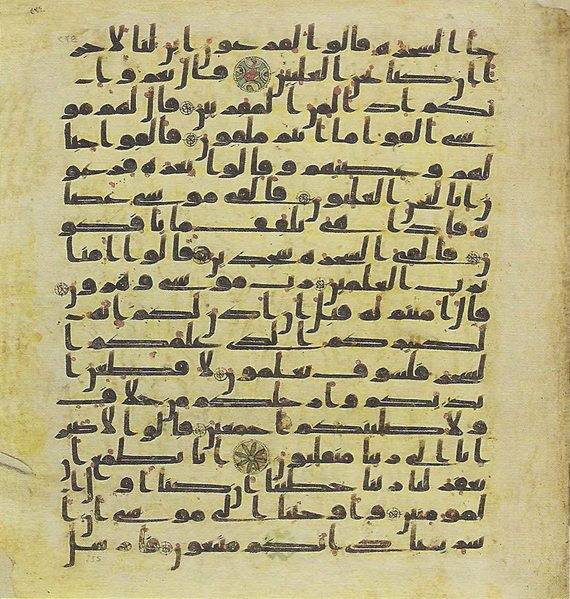 جا السحره قالوا لفرعون اين لنا لاجر
ا ان كنا نحن الغلبين قال نعم وا
نكم اذا لمن المقربين قال لهم مو
سى القوا ما انتم ملقون فالقوا حبا
لهم وعصيهم وقالوا بعزه فرعو
ن انا لنحن الغلبون فالقى موسى عصا
ه فاذا هى تلقف ما يافكو
ن فالقى السحره سجدين قالوا امنا
برب العلمين رب موسى وهرون
قال امنتم له قبل ان اذن لكم انه
لكبيركم الذى علمكم ا
لسحر فلسوف تعلمون لاقطعن ا
يديكم وارجلكم من خلاف
ولاصلبنكم اجمعين قالوا لا ضير
انا الى ربنا منقلبون انا نطمع ان
يغفر لنا ربنا خطينا ان كنا اول ا
لمومنين واوحينا الى موسى ان ا
سر بعبادى انكم متبعون فارسل